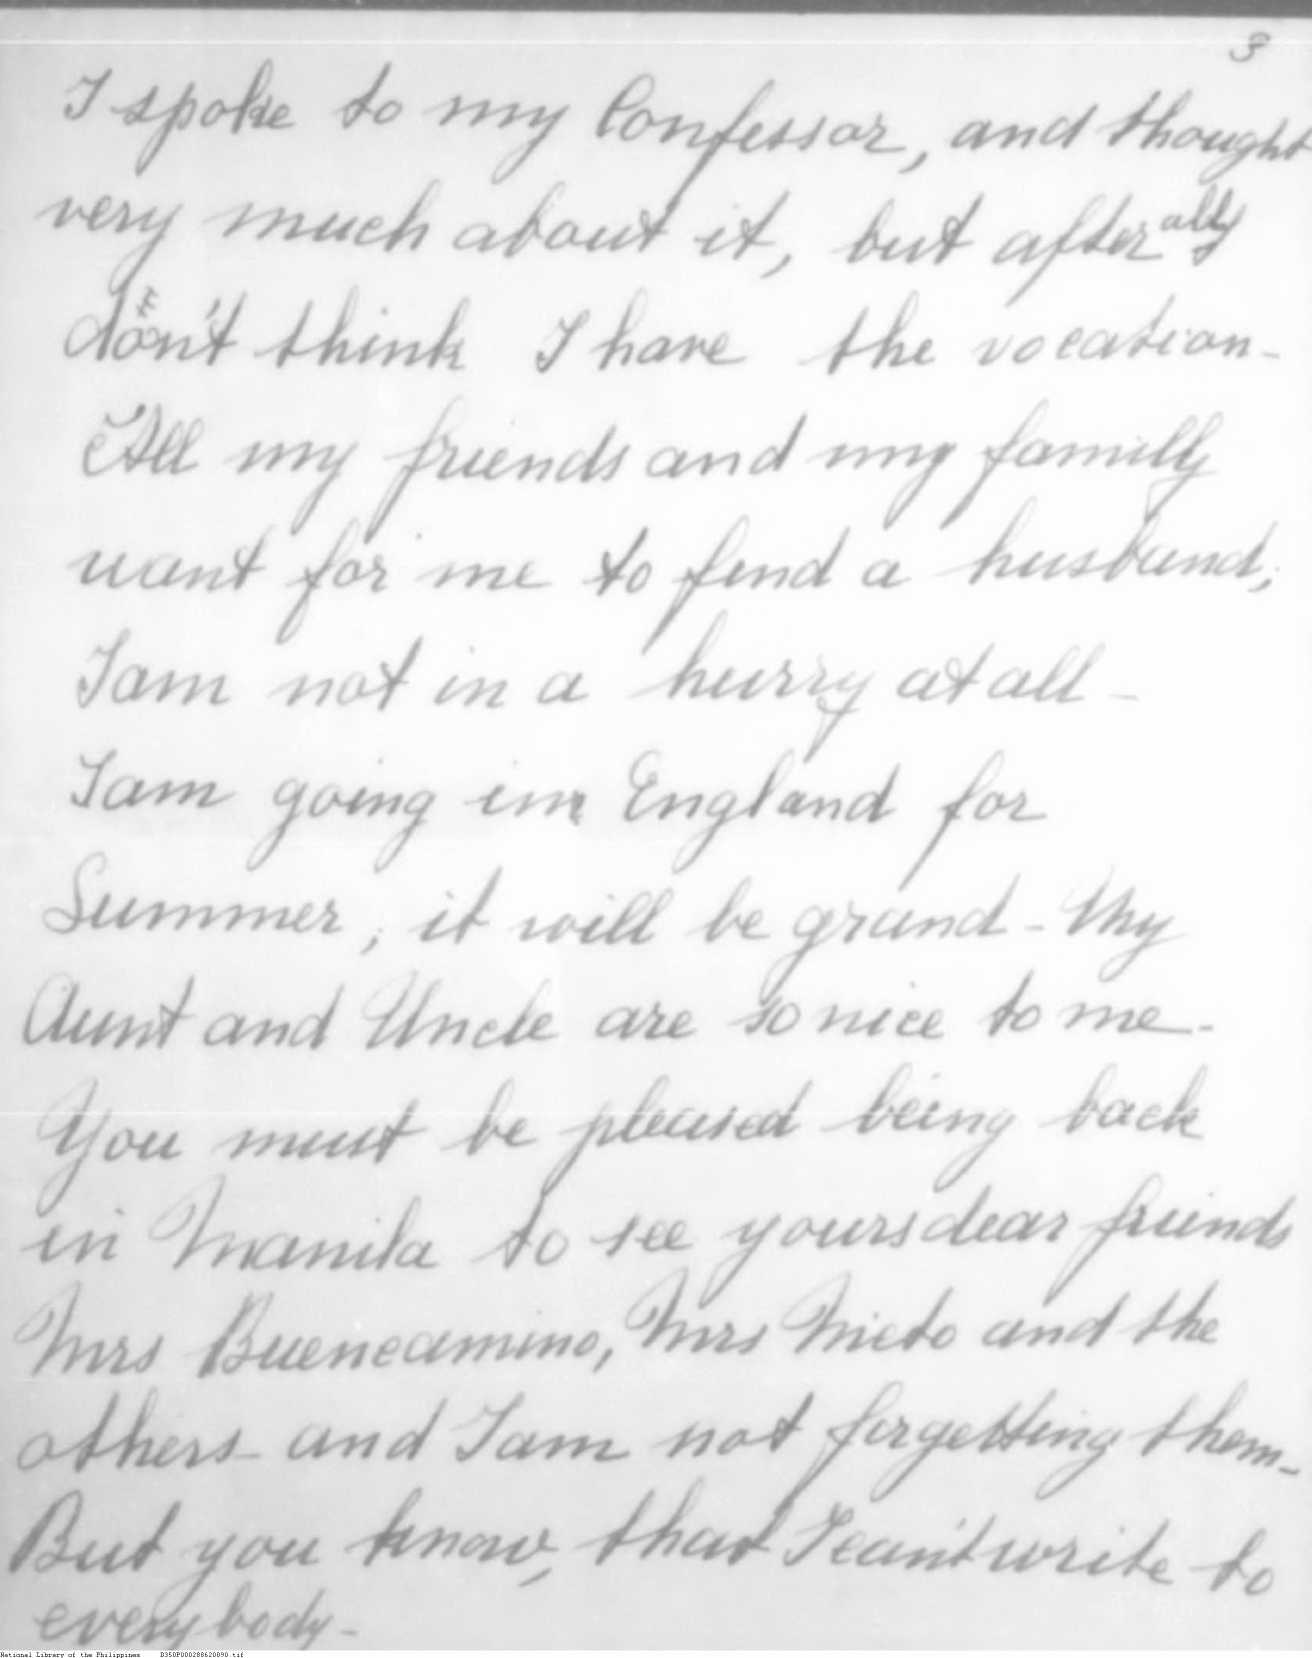 3
I spoke to my Confessor, and thought
very much about it, but after all I
don't think I have the vocation -
All my friends and my familly
want for me to find a husband,
I am not in a hurry at all -
I am going in England for
Summer, it will be grand - My
Aunt and Uncle are so nice to me -
You must be pleased being back
in Manila to see yours dear friends
Mrs Buencamino, Mrs Nieto and the
others - and I am not forgetting them -
But you know, that I can't write to
everybody -
National Library of the Philippines D350P000288620890.tif